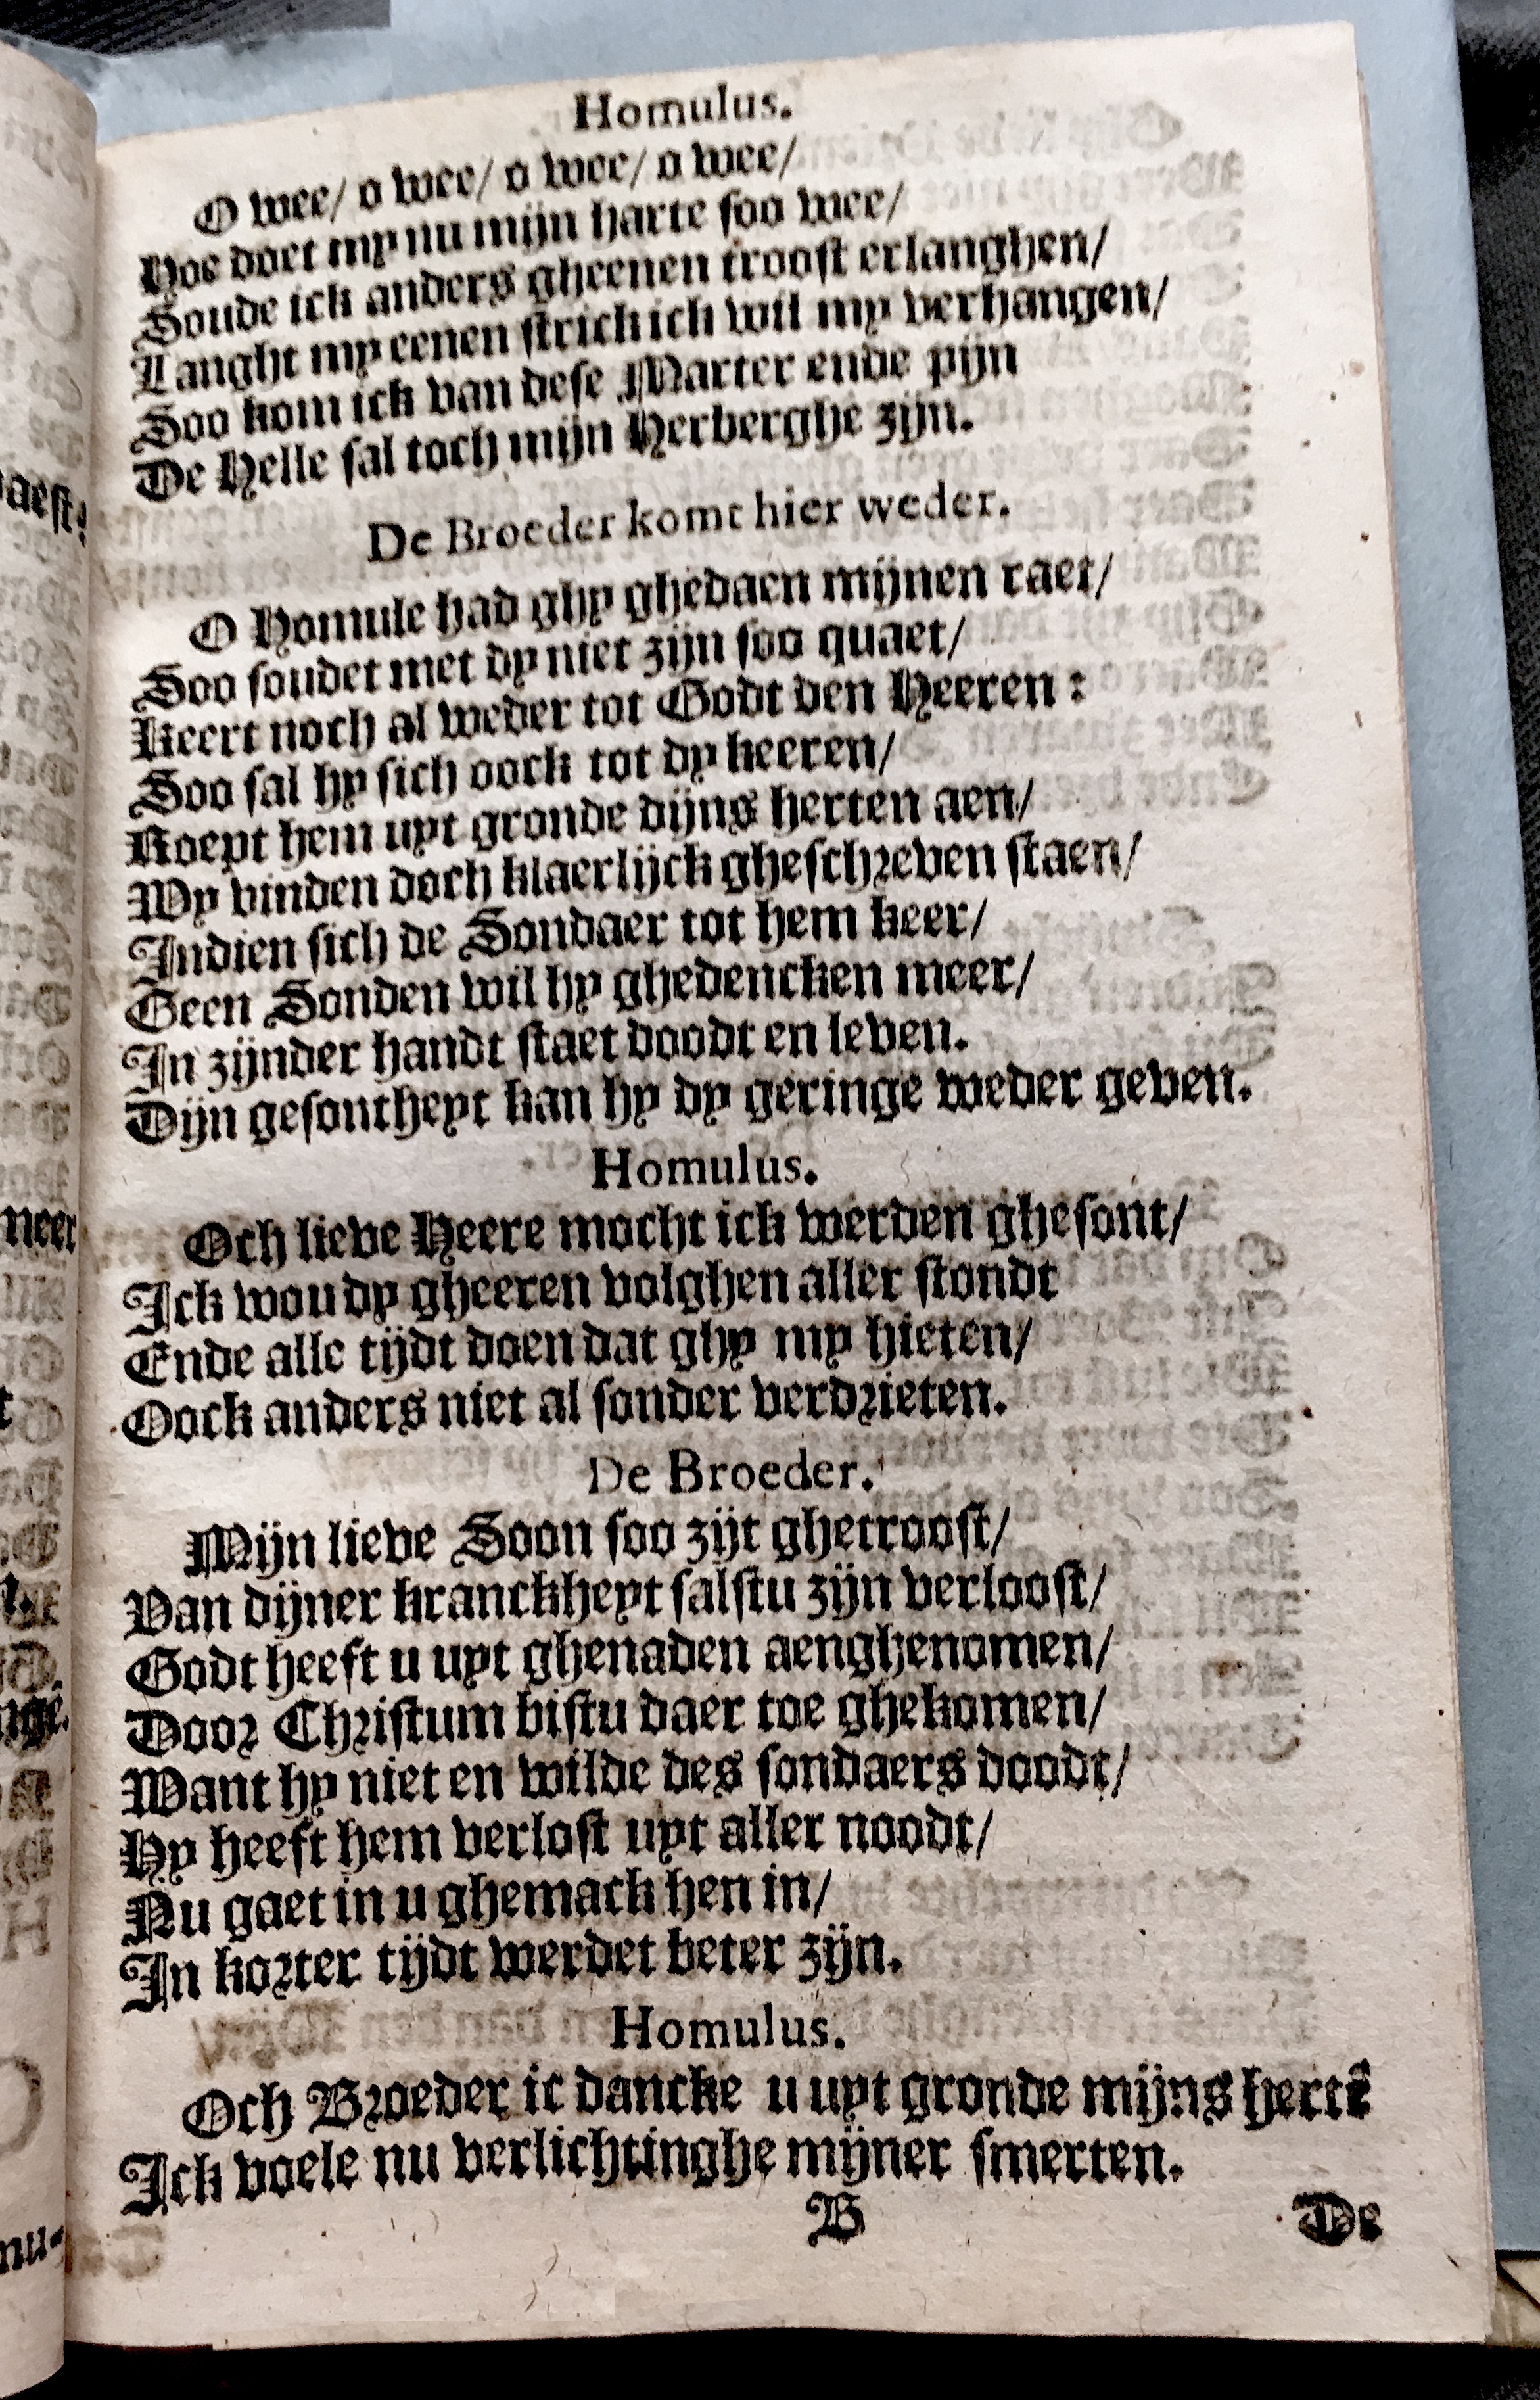 Homulus.
O wee/ o wee/ o wee/ o wee/
Hoe doet my nu mijn harte soo wee/
Soude ick anders gheenen troost erlanghen/
Langht my eenen strick ick wil my verhangen/
Soo kom ick van dese Marter ende pijn
De Helle sal toch mijn Herberghe zijn.
De Broeder komt hier weder.
O Homule had ghy ghedaen mijnen raet/
Soo soudet met dy niet zijn soo quaet/
Keert noch al weder tot Godt den Heeren:
Soo sal hy sich oock tot dy keeren/
Roept hem uyt gronde dijns herten aen/
Wy vinden doch klaerlijck gheschreven staen/
Indien sich de Sondaer tot hem keer/
Geen Sonden wil hy ghedencken meer/
In zijnder handt staet doodt en leven.
Dijn gesontheyt kan hy dy geringe weder geven.
Homulus.
Och lieve Heere mocht ick werden ghesont/
Ick wou dy gheeren volghen aller stondt
Ende alle tijdt doen dat ghy my hieten/
Oock anders niet al sonder verdrieten.
De Broeder.
Mijn lieve Soon soo zijt ghetroost/
Van dijner kranckheyt salstu zijn verloost/
Godt heeft u uyt ghenaden aenghenomen/
Door Christum bistu daer toe ghekomen/
Want hy niet en wilde des sondaers doodt/
Hy heeft hem verlost uyt aller noodt/
Nu gaet in u ghemack hen in/
In korter tijdt werdet beter zijn.
Homulus.
Och Broeder ic dancke u uyt gronde mijns hertē
Ick voele nu verlichtinghe mijner smerten.
B
De